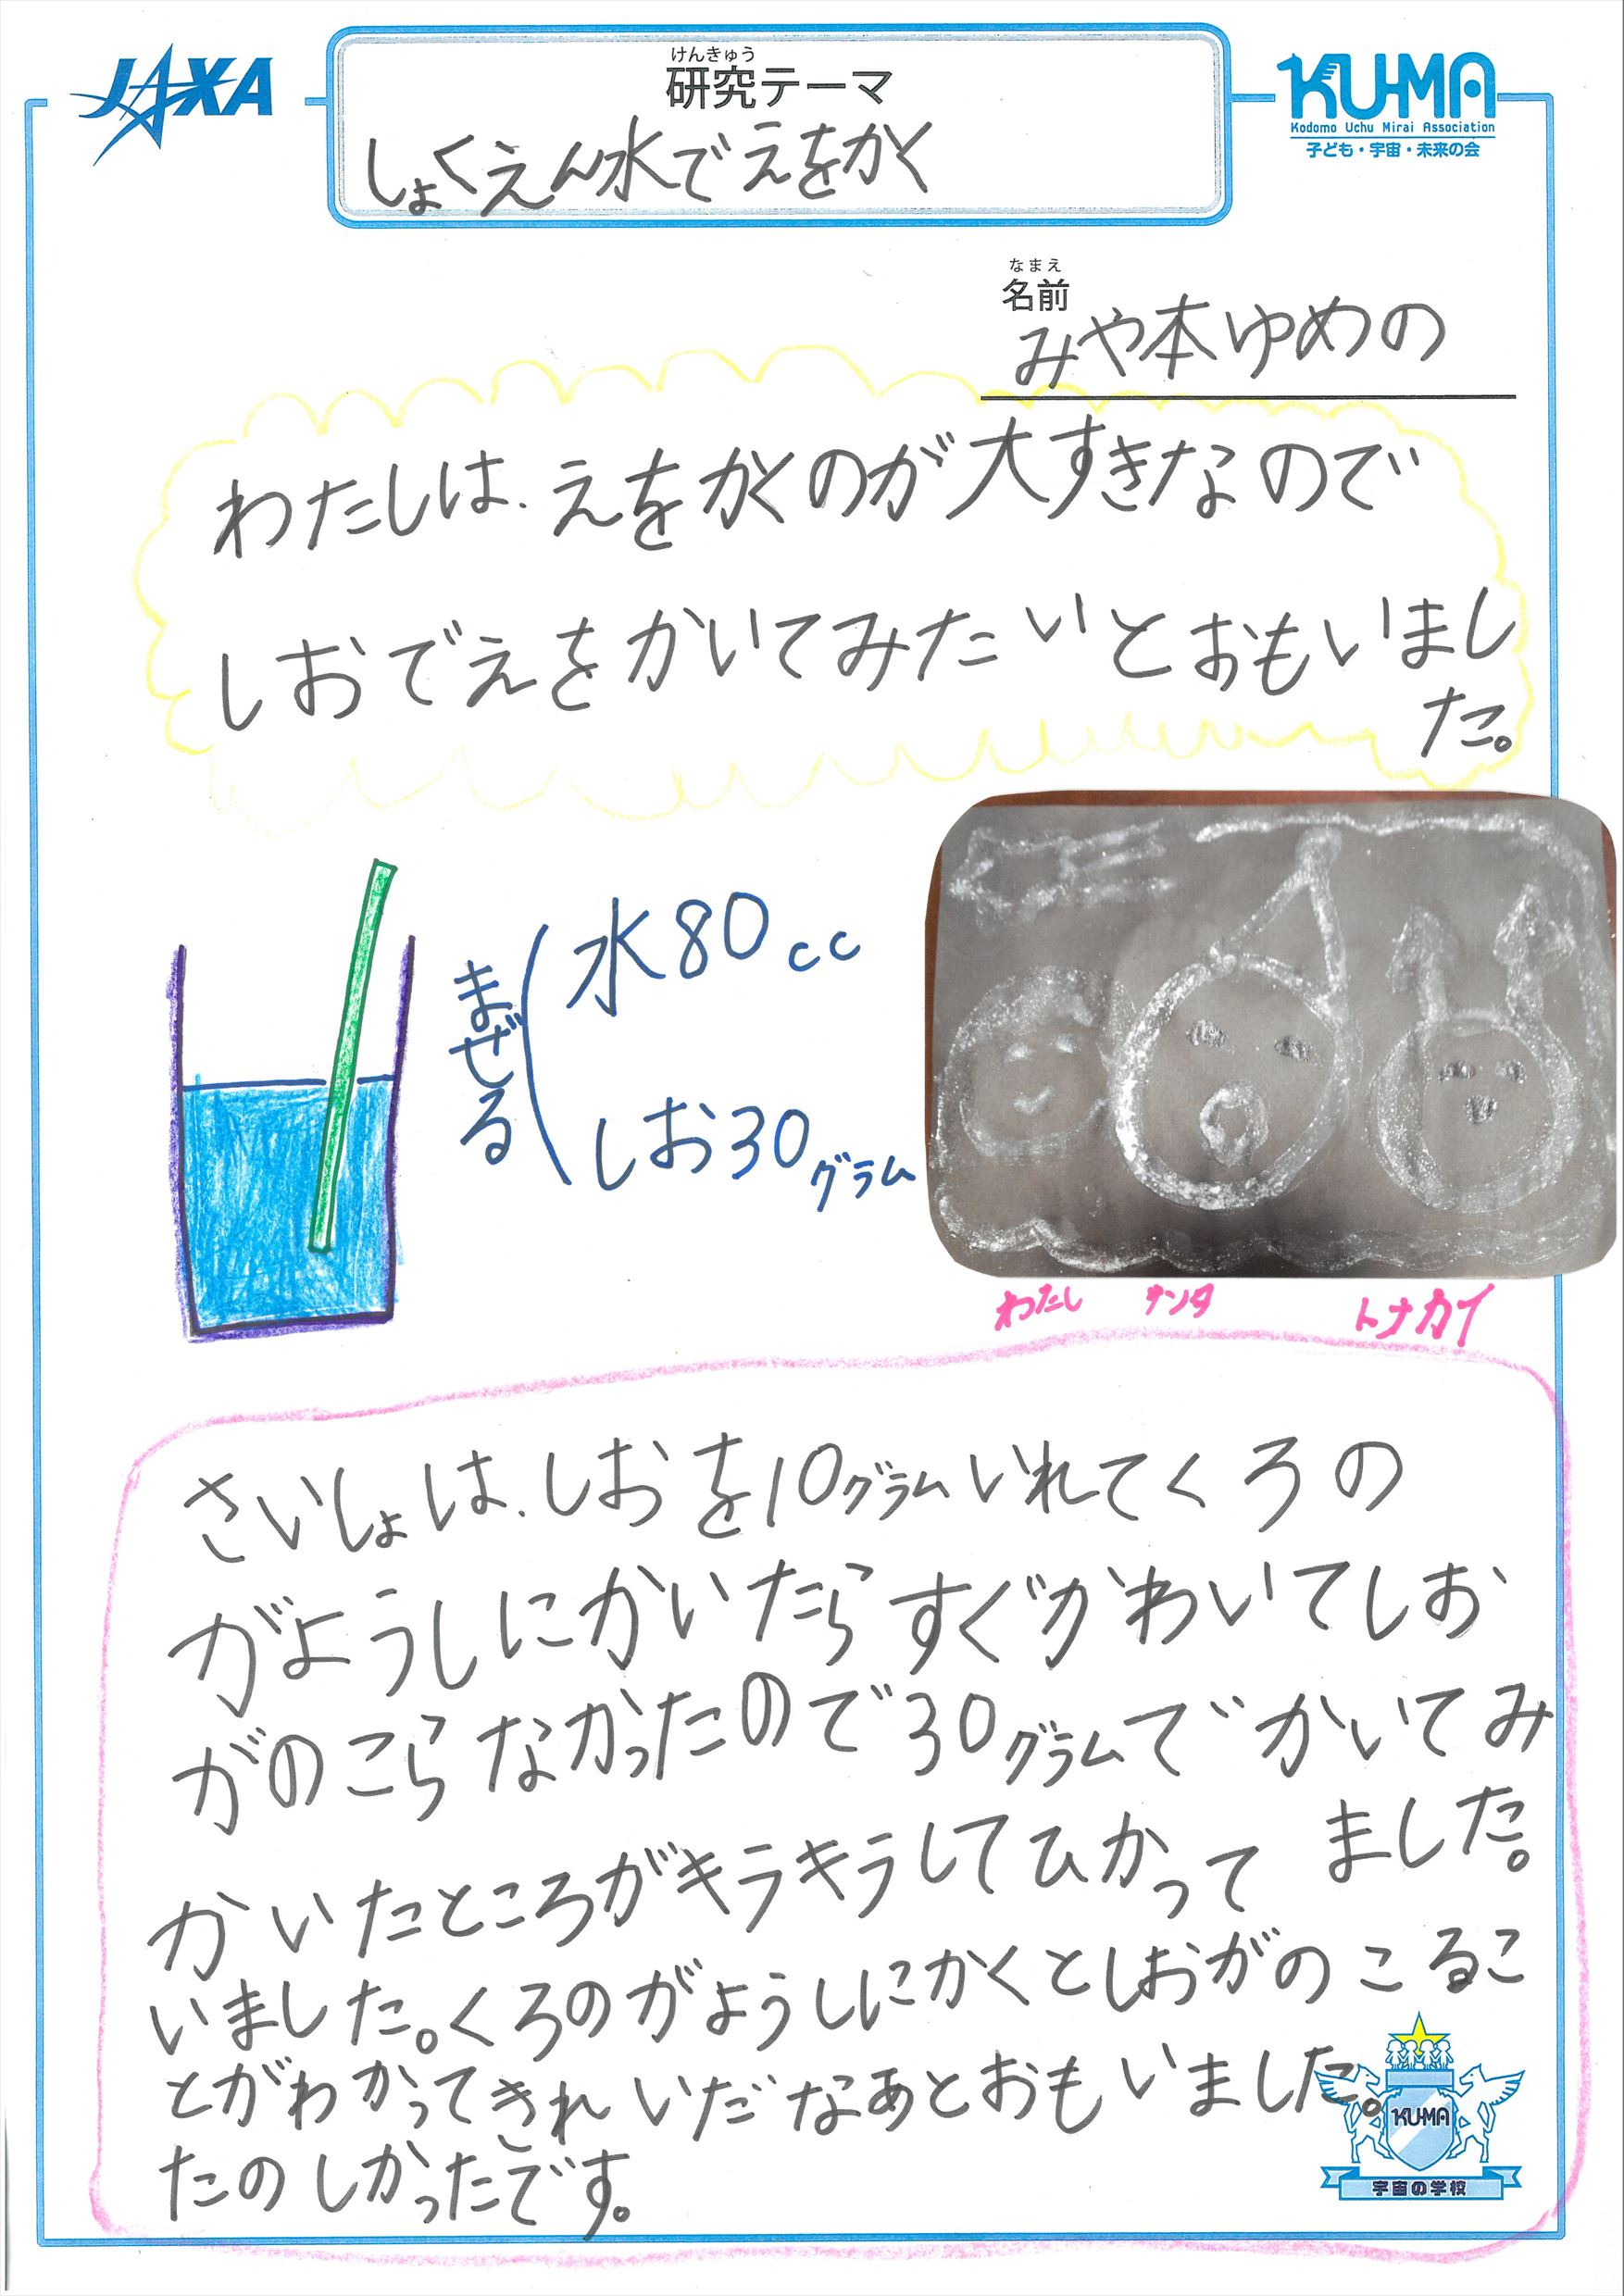 JAXA
けんきゅう
研究テーマ
しょくえん水でえをかく
KU-MA
Kodomo Uchu Mirai Association
子ども・宇宙・未来の会
なまえ
名前
みや本ゆめの
わたしは、えをかくのが大すきなので
しおでえをかいてみたいとおもいまし
た。
まぜる
水80cc
しお30グラム
わたし サンタ トナカイ
さいしょは、しおを10グラムいれてくろの
がようしにかいたらすぐかわいてしお
がのこらなかったので30グラムでかいてみ
ました。
かいたところがキラキラしてひかって
いました。くろのがようしにかくとしおがのこるこ
とがわかってきれいだなあとおもいました。
たのしかったです。
KU-MA
宇宙の学校